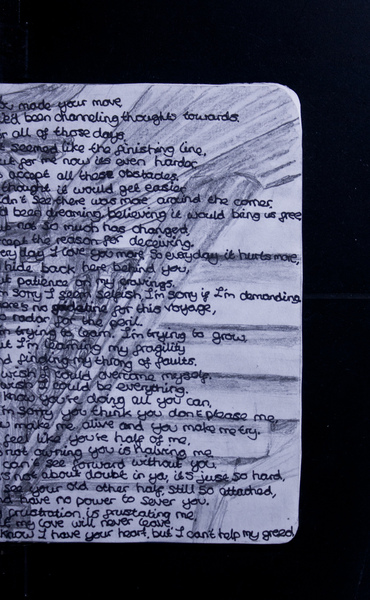 made your move,
been channeling thoughts towards.
all of those days,
seemed like the finishing line,
for me now it's even harder,
accept all these obstacles.
thought it would get easier
didn't see there was more around the corner.
been dreaming, believing it would bring us free
not so much has changed
the reason for deceiving,
day I love you more, so everyday it hurts more,
hide back here behind you,
patience on my cravings.
sorry I seem selfish, I'm sorry if I'm demanding
no guideline for this voyage,
radar, for the peril.
trying to learn, I'm trying to grow,
I'm learning my fragility
finding my throng of faults.
wish I could overcome myself.
wish I could be everything.
know you're doing all you can,
I'm sorry you think you don't please me.
make me alive and you make me try.
feel like you're half of me,
not owning you is halving me
can't see forward without you.
not about doubt in ya, it's just so hard,
see your old other half still so attached,
have no power to sever you.
frustration is frustating me
my love will never leave
know I have your heart, but I can't help my greed